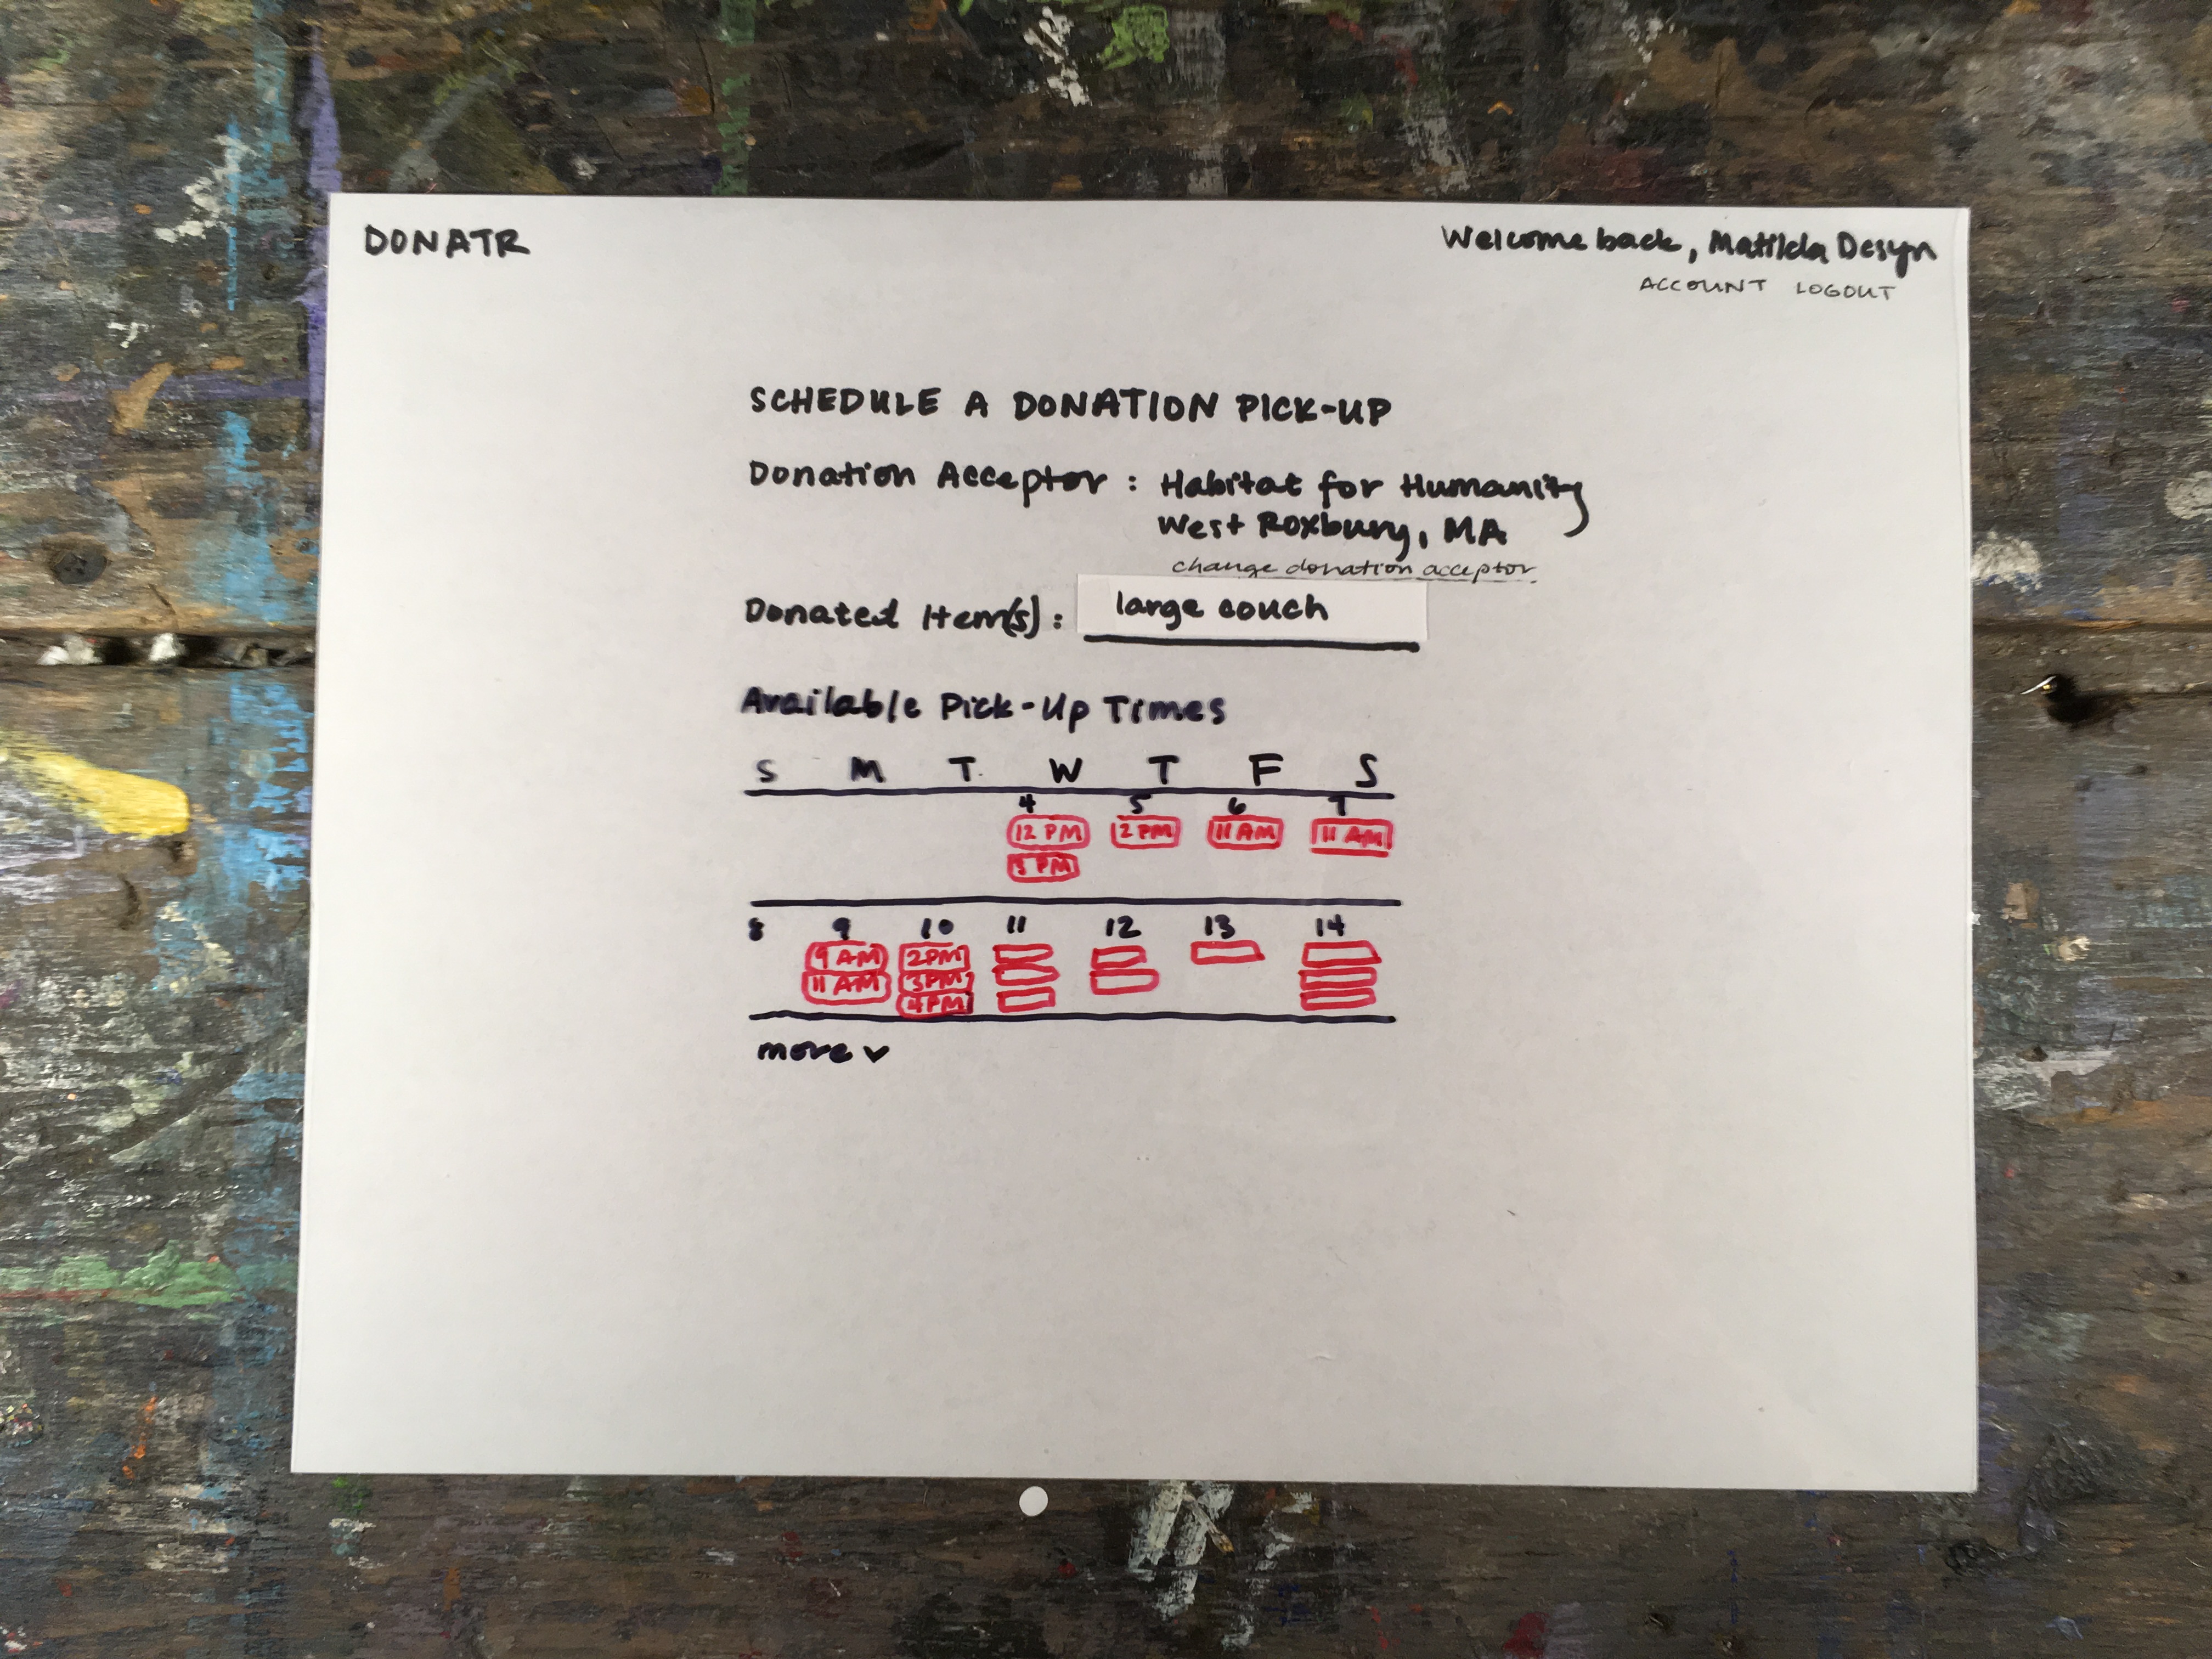 DONATR
Welcome back, Matilda Desyn
ACCOUNT LOGOUT
SCHEDULE A DONATION PICK-UP
Donation Acceptor: Habitat for Humanity
West Roxbury, MA
change donation acceptor
Donated Item(s): large couch
Available Pick-Up Times
S M T W T F S
4 5 6 7
12 PM 2 PM 11 AM 11 AM
PM
8 9 10 11 12 13 14
9 AM 2PM
11 AM 3PM
4PM
more